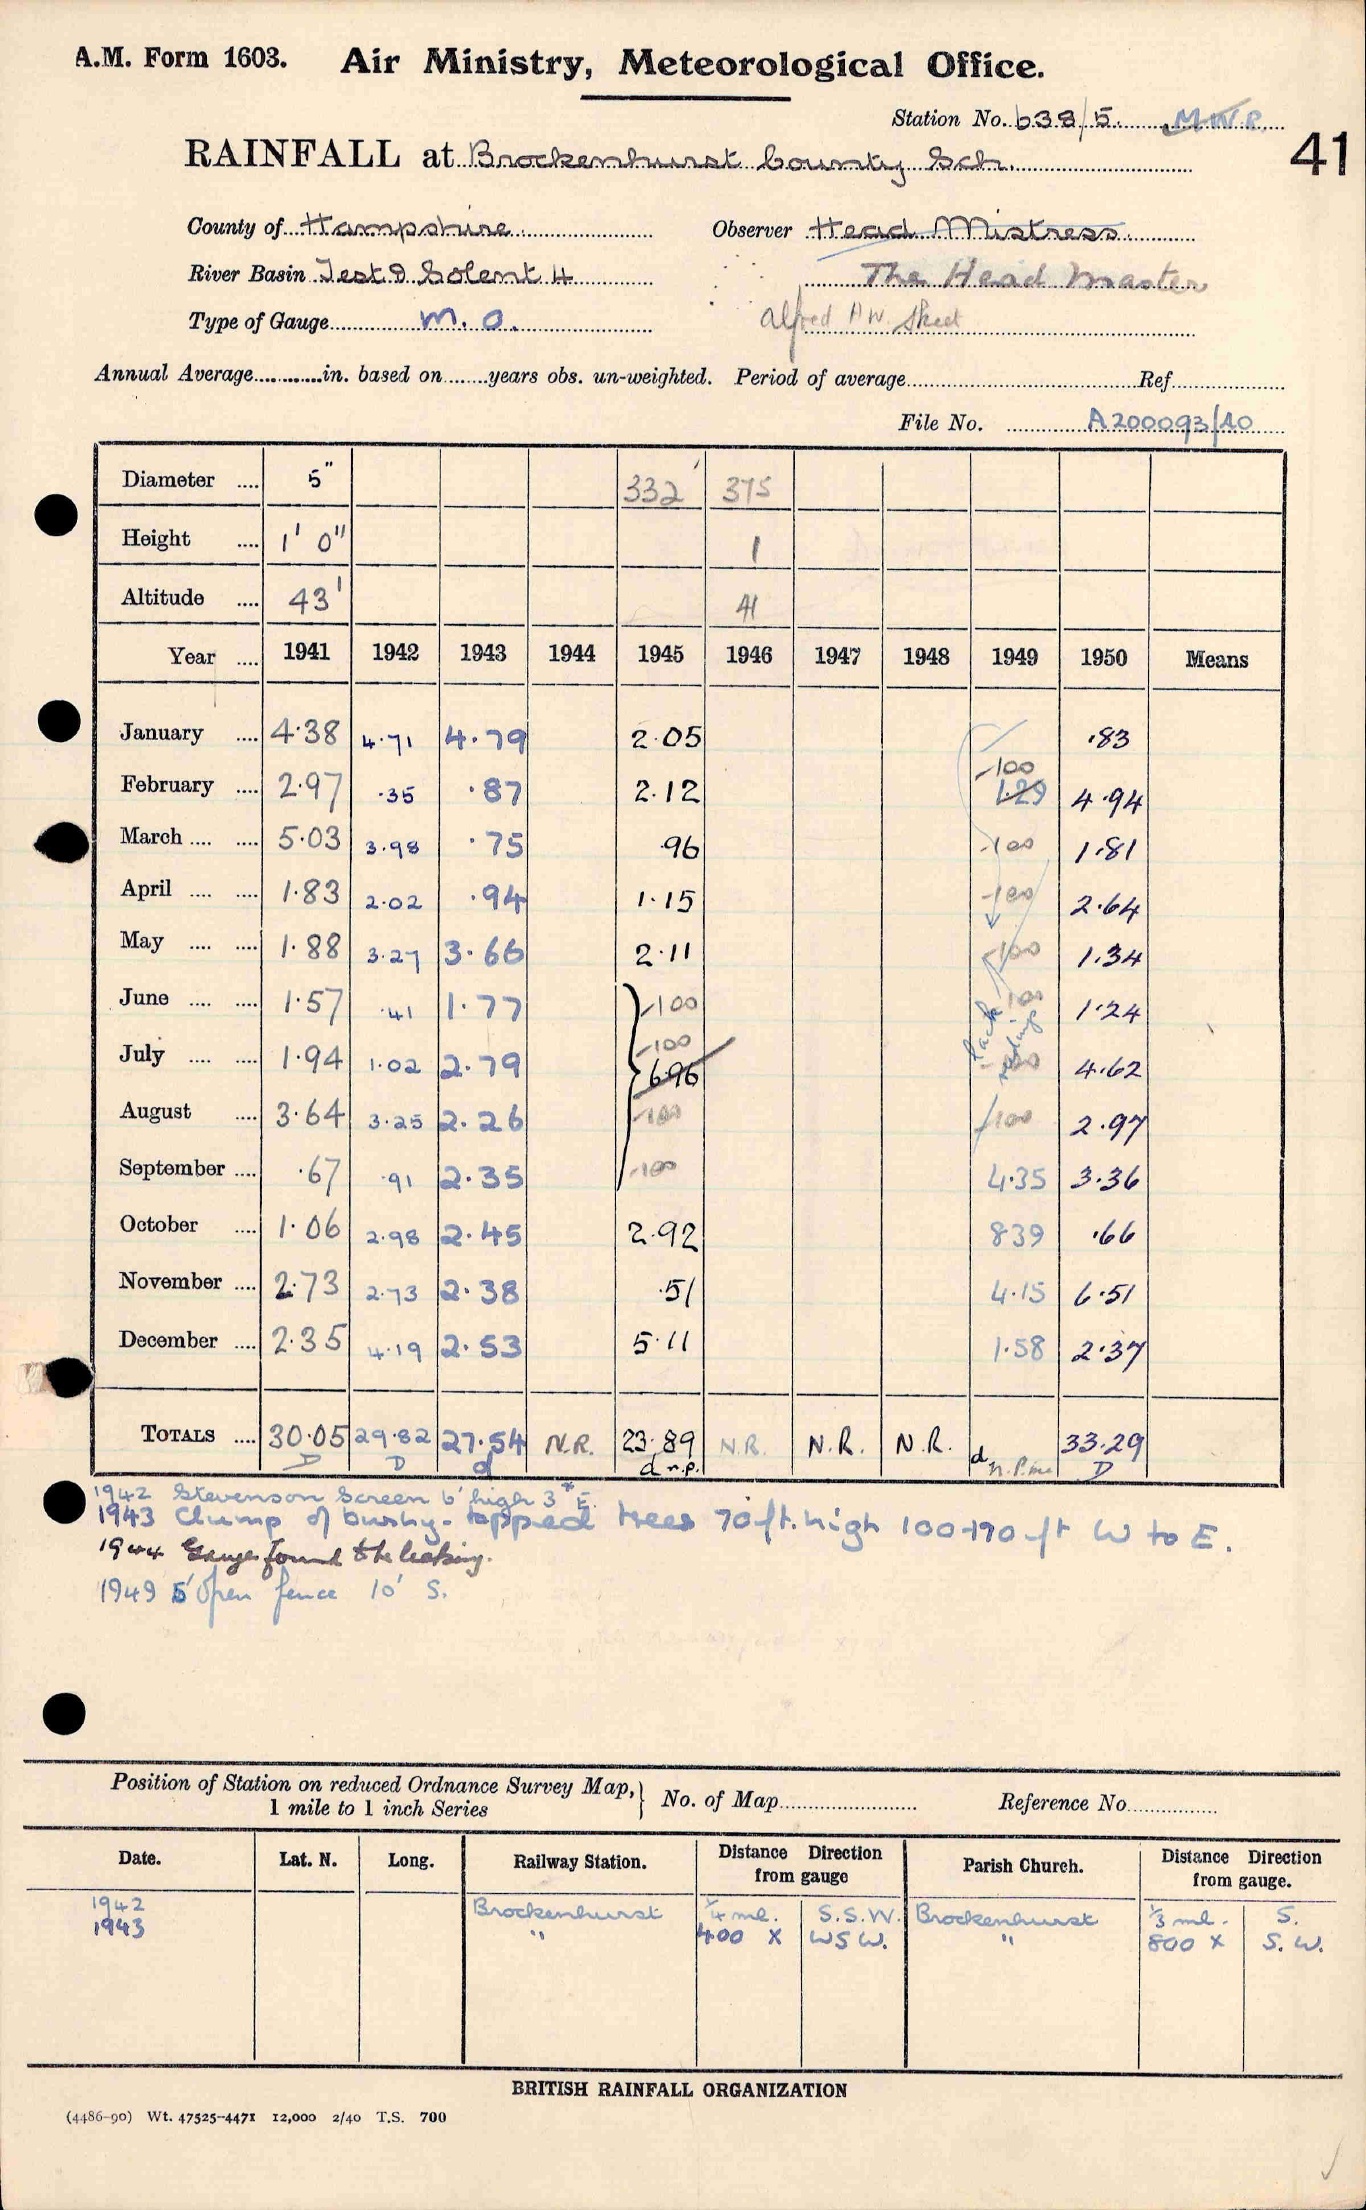 A.M. Form 1603. Air Ministry, Meteorological Office.
Station No. 638/5. M.W.R.
41
RAINFALL at Brockenhurst County Sch.
County of Hampshire Observer Head Mistress
River Basin Test & Solent 4 The Head Master
Type of Gauge M. O. Alfred W. Skeet
Annual Average............in. based on........years obs. un-weighted. Period of average Ref
File No. A200093/40
Diameter .... 5" 332 375
Height .... 1' 0" 1
Altitude .... 43' 41
Year .... 1941 1942 1943 1944 1945 1946 1947 1948 1949 1950 Means
January .... 4.38 4.71 4.79 2.05 .83
-100
February .... 2.97 .35 .87 2.12 1.29 4.94
March .... .... 5.03 3.98 .75 .96 -100 1.81
April .... .... 1.83 2.02 .94 1.15 -100 2.64
May .... .... 1.88 3.27 3.66 2.11 -100 1.34
June .... .... 1.57 .41 1.77 -100 -100 1.24
-100
July .... .... 1.94 1.02 2.79 6.96 -100 4.62
August .... 3.64 3.25 2.26 -100 -100 2.97
September .... .67 .91 2.35 -100 4.35 3.36
October .... 1.06 2.98 2.45 2.92 839 .66
November .... 2.73 2.73 2.38 .51 4.15 6.51
December .... 2.35 4.19 2.53 5.11 1.58 2.37
TOTALS .... 30.05 29.82 27.54 N.R. 23.89 N.R. N.R. N.R. d 33.29
D D d d n.p. D
1942 Stevenson Screen 6' high 3 E.
1943 Clump of bushy-topped trees 70 ft. high 100-170 ft W to E.
1944 Gauge found to be leaking.
1949 5' open fence 10' S.
Position of Station on reduced Ordnance Survey Map, 1 mile to 1 inch Series } No. of Map Reference No.
Date. Lat. N. Long. Railway Station. Distance Direction from gauge Parish Church. Distance Direction from gauge.
1942 Brockenhurst 1/4 ml. S.S.W. Brockenhurst 1/3 ml. S.
1943 " 400 x WSW. " 800 x S. W.
BRITISH RAINFALL ORGANIZATION
(4486-90) Wt. 47525-4471 12,000 2/40 T.S. 700